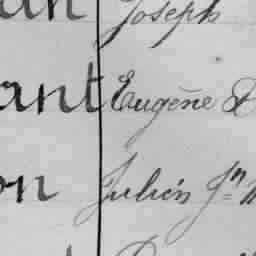 an Joseph
ant Eugène D
on Julien Jn